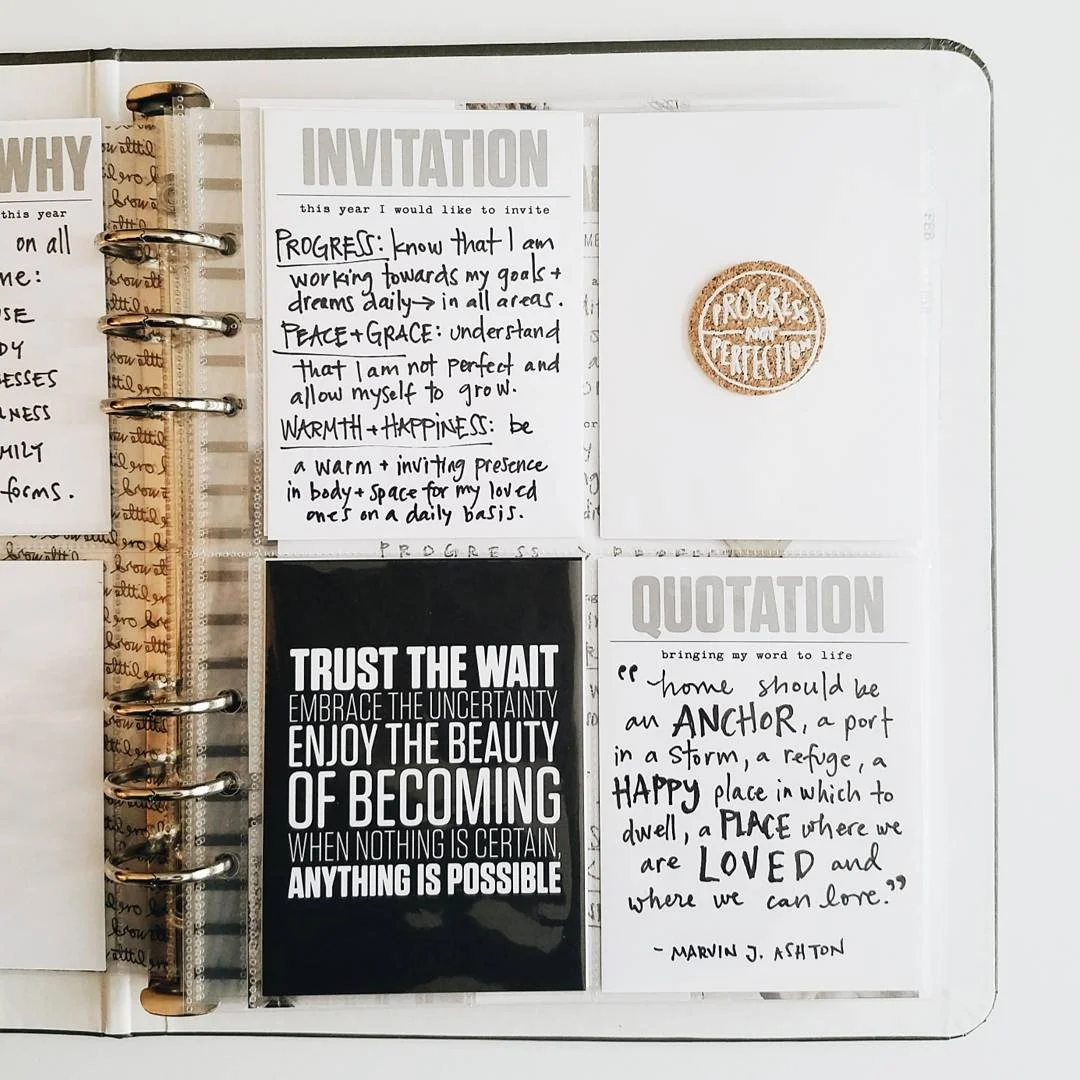 WHY
this year
on all
me:
USE
DY
ESSES
LNESS
MILY
forms.
INVITATION
this year I would like to invite
PROGRESS: know that I am
working towards my goals +
dreams daily → in all areas.
PEACE + GRACE: understand
that I am not perfect and
allow myself to grow.
WARMTH + HAPPINESS: be
a warm + inviting presence
in body + space for my loved
ones on a daily basis.
PROGRESS
NOT
PERFECTION
PROGRESS
TRUST THE WAIT
EMBRACE THE UNCERTAINTY
ENJOY THE BEAUTY
OF BECOMING
WHEN NOTHING IS CERTAIN,
ANYTHING IS POSSIBLE
QUOTATION
bringing my word to life
"home should be
an ANCHOR, a port
in a storm, a refuge, a
HAPPY place in which to
dwell, a PLACE where we
are LOVED and
where we can love."
- MARVIN J. ASHTON